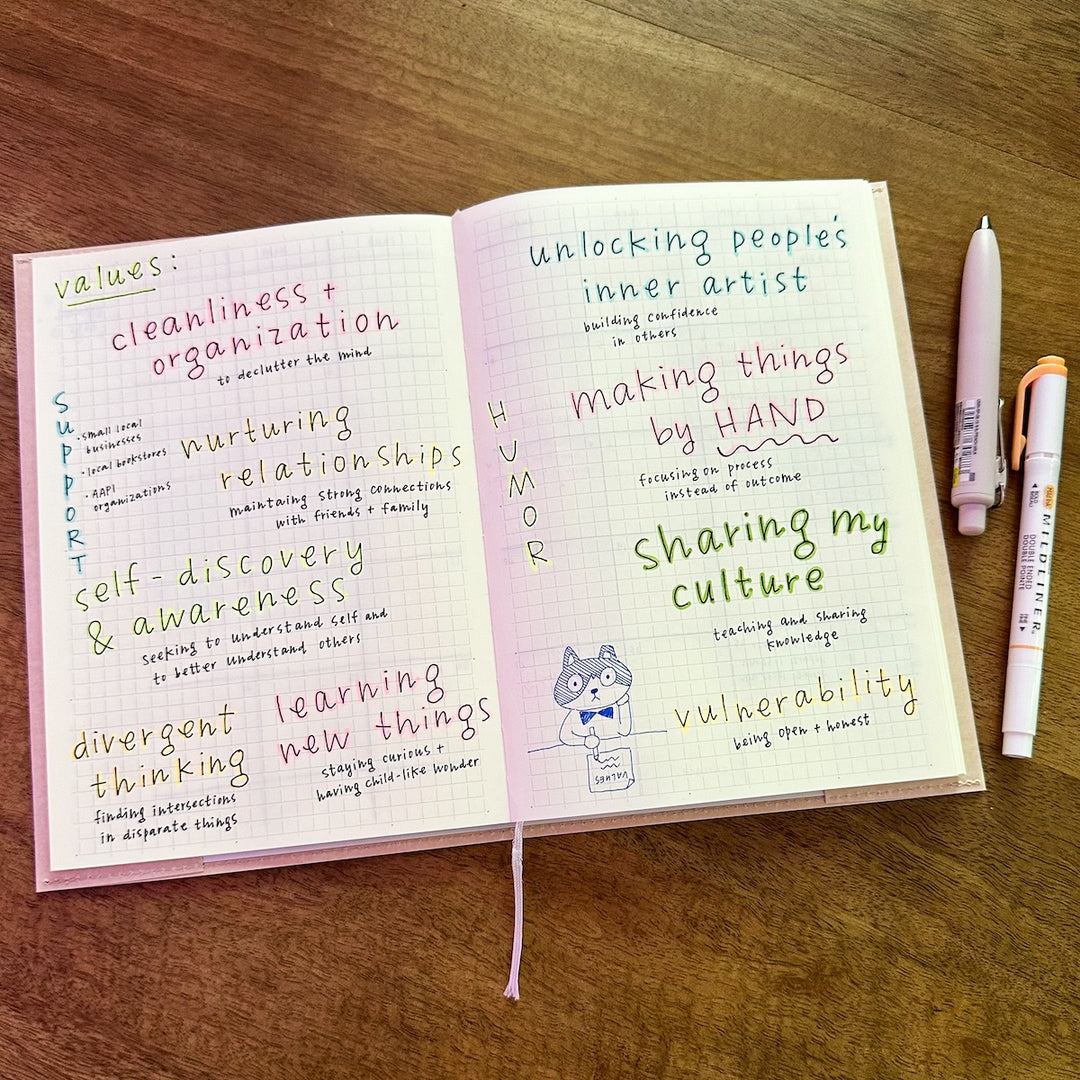 values:
cleanliness +
organization
to declutter the mind
SUPPORT
• small local
businesses
• local bookstores
• AAPI
organizations
nurturing
relationships
maintaing strong connections
with friends + family
self-discovery
& awareness
seeking to understand self and
to better understand others
divergent
thinking
finding intersections
in disparate things
learning
new things
staying curious +
having child-like wonder
HUMOR
unlocking people's
inner artist
building confidence
in others
making things
by HAND
focusing on process
instead of outcome
sharing my
culture
teaching and sharing
knowledge
vulnerability
being open + honest
VALUES
MILDLINER
DOUBLE ENDED
DOUBLE POINTE